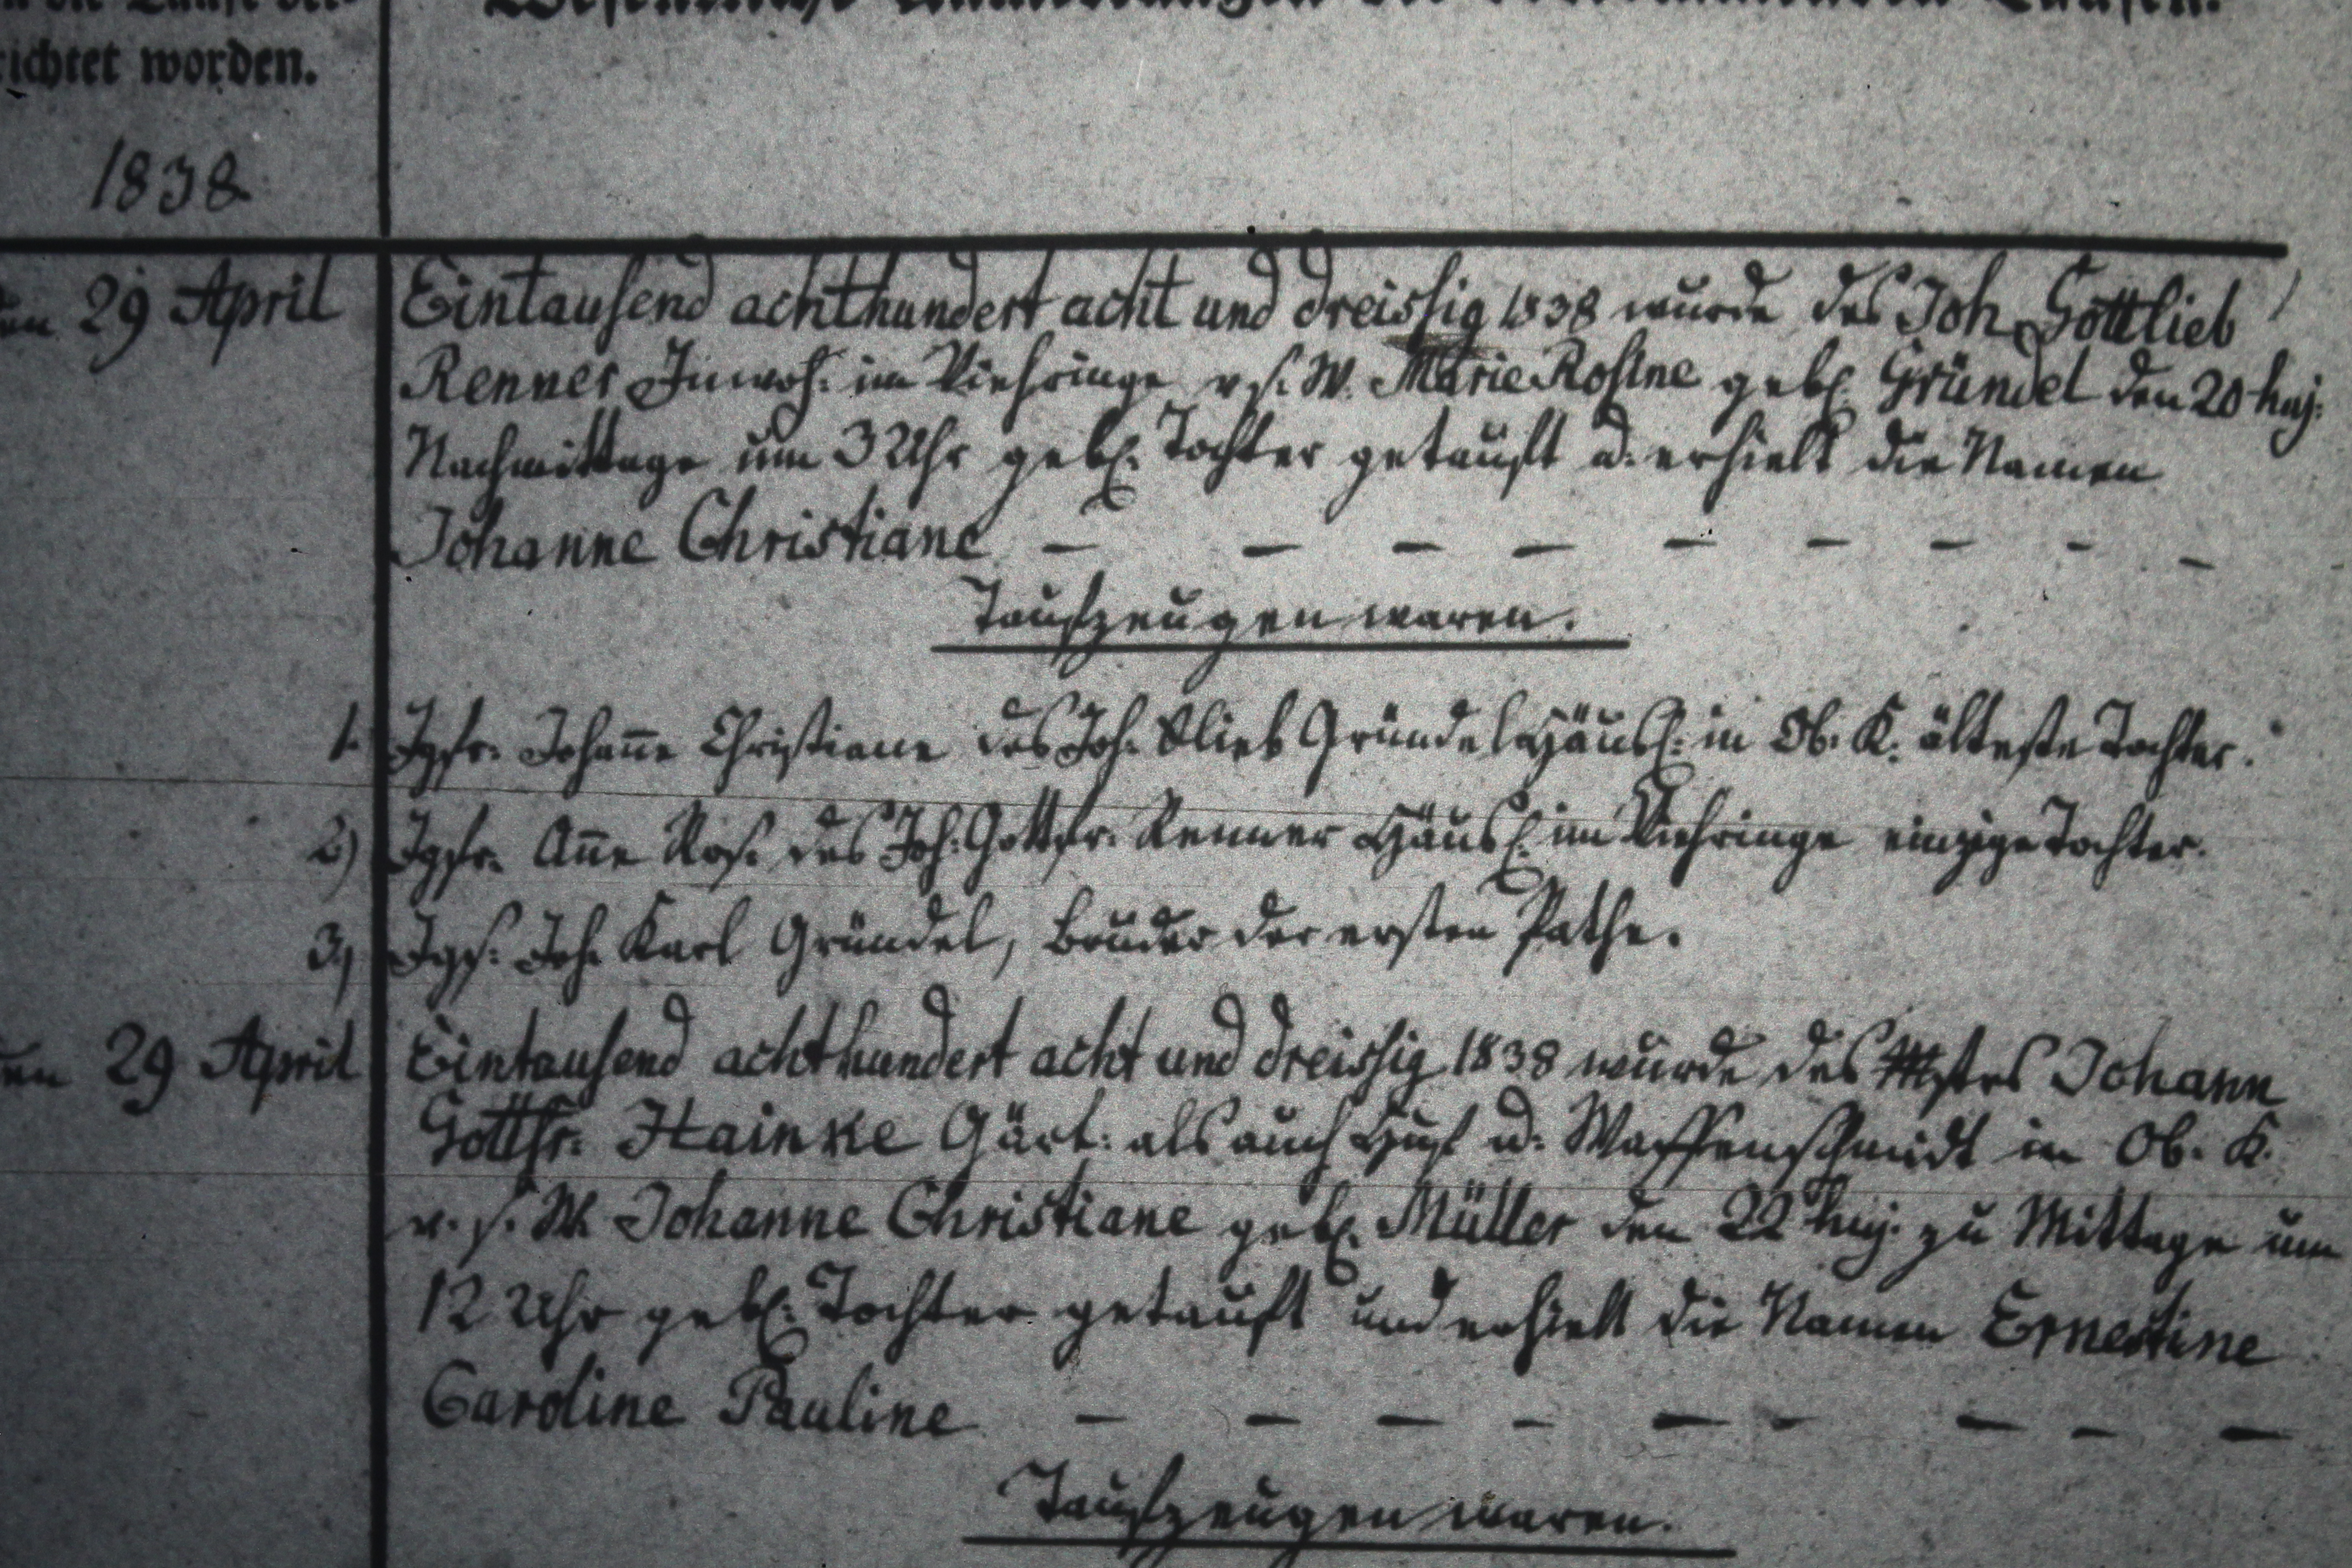 richtet worden.
1838
den 29 April Eintausend achthundert acht und dreissig 1838 wurde des Joh Gottlieb
Renner Inwoh: im Viehringe v. s. W. Marie Rosine gebl. Gründel den 20 huj:
Nachmittage um 3 Uhr gebl. Tochter getauft u. erhielt die Namen
Johanne Christiane — — — — — — — - -
Taufzeugen waren.
1. Jgfr. Johañe Christiane des Joh. Glieb Gründel Häusl: in Ob. K. älteste Tochter.
2) Jgfr. Añe Ros. des Joh. Gottfr. Renner Häusl: im Viehringe einzige Tochter.
3) Jgs: Joh. Karl Gründel, Bruder der ersten Pathe.
den 29 April Eintausend achthundert acht und dreissig 1838 wurde des Mstrs Johann
Gottfr: Hainke Gärt: als auch Huf u. Waffenschmidt in Ob. K.
v. s. W. Johanne Christiane gebl. Müller den 22 huj. zu Mittage um
12 Uhr gebl: Tochter getauft und erhielt die Namen Ernestine
Caroline Pauline — — — - — - — - —
Taufzeugen waren.